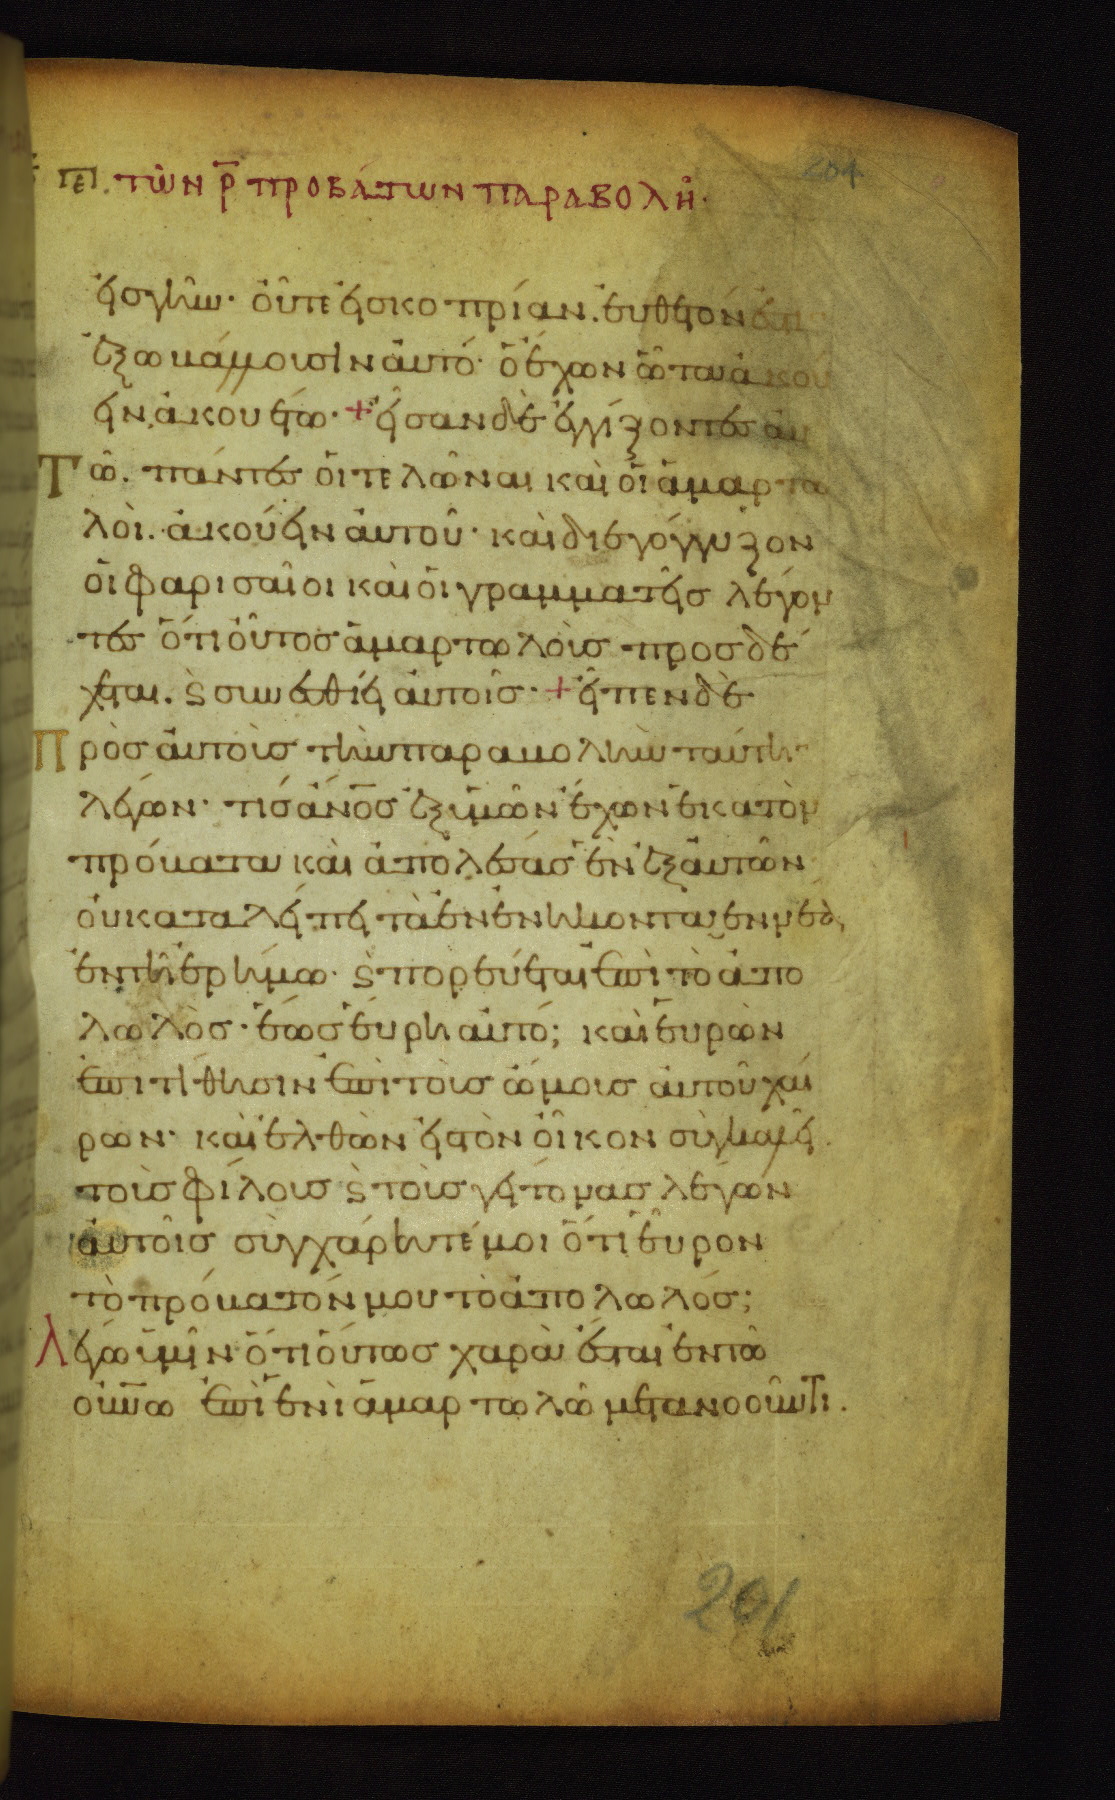 περι τῶν ρ̅ προβάτων παραβολή.
204
εἰς γῆν· οὔτε εἰς κοπρίαν. εὔθετόν ἐστιν
ἔξω βάλλουσιν αὐτό· ὁ ἔχων ὦτα ἀκού
ειν, ἀκουέτω· + ἦσαν δὲ ἐγγίζοντες αὐ
Τῶ. πάντες οἱ τελῶναι καὶ οἱ ἁμαρτω
λοὶ. ἀκούειν αὐτοῦ· καὶ διεγόγγυζον
οἱ φαρισαῖοι καὶ οἱ γραμματεῖς λέγον
τες ὅτι οὗτος ἁμαρτωλοὺς προσδέ
χεται. ϗ συνεσθίει αὐτοῖς· + εἶπεν δὲ
Πρὸς αὐτοὺς τὴν παραβολὴν ταύτην
λέγων· τίς ἄν̅ος ἐξ ὑμῶν ἔχων ἑκατὸν
πρόβατα καὶ ἀπολέσας ἓν ἐξ αὐτῶν
οὐ καταλείπει τὰ ἐνενήκοντα ἐννέα,
ἐν τῆ ἐρήμω· ϗ πορεύεται ἐπὶ τὸ ἀπο
λωλὸς· ἕως εὕρη αὐτό; καὶ εὑρὼν
ἐπιτίθησιν ἐπὶ τοὺς ὤμους αὐτοῦ χαί
ρων· καὶ ἐλθὼν εἰς τὸν οἶκον συγκαλεῖ
τοὺς φίλους ϗ τοὺς γείτονας λέγων
αὐτοῖς συγχάρητέ μοι ὅτι εὗρον
τὸ πρόβατόν μου τὸ ἀπολωλός;
Λέγω ὑμῖν ὅτι οὕτως χαρὰ ἔσται ἐν τῶ
οὐ̅νω ἐπὶ ἑνὶ ἁμαρτωλῶ μετανοοῦντι.
201